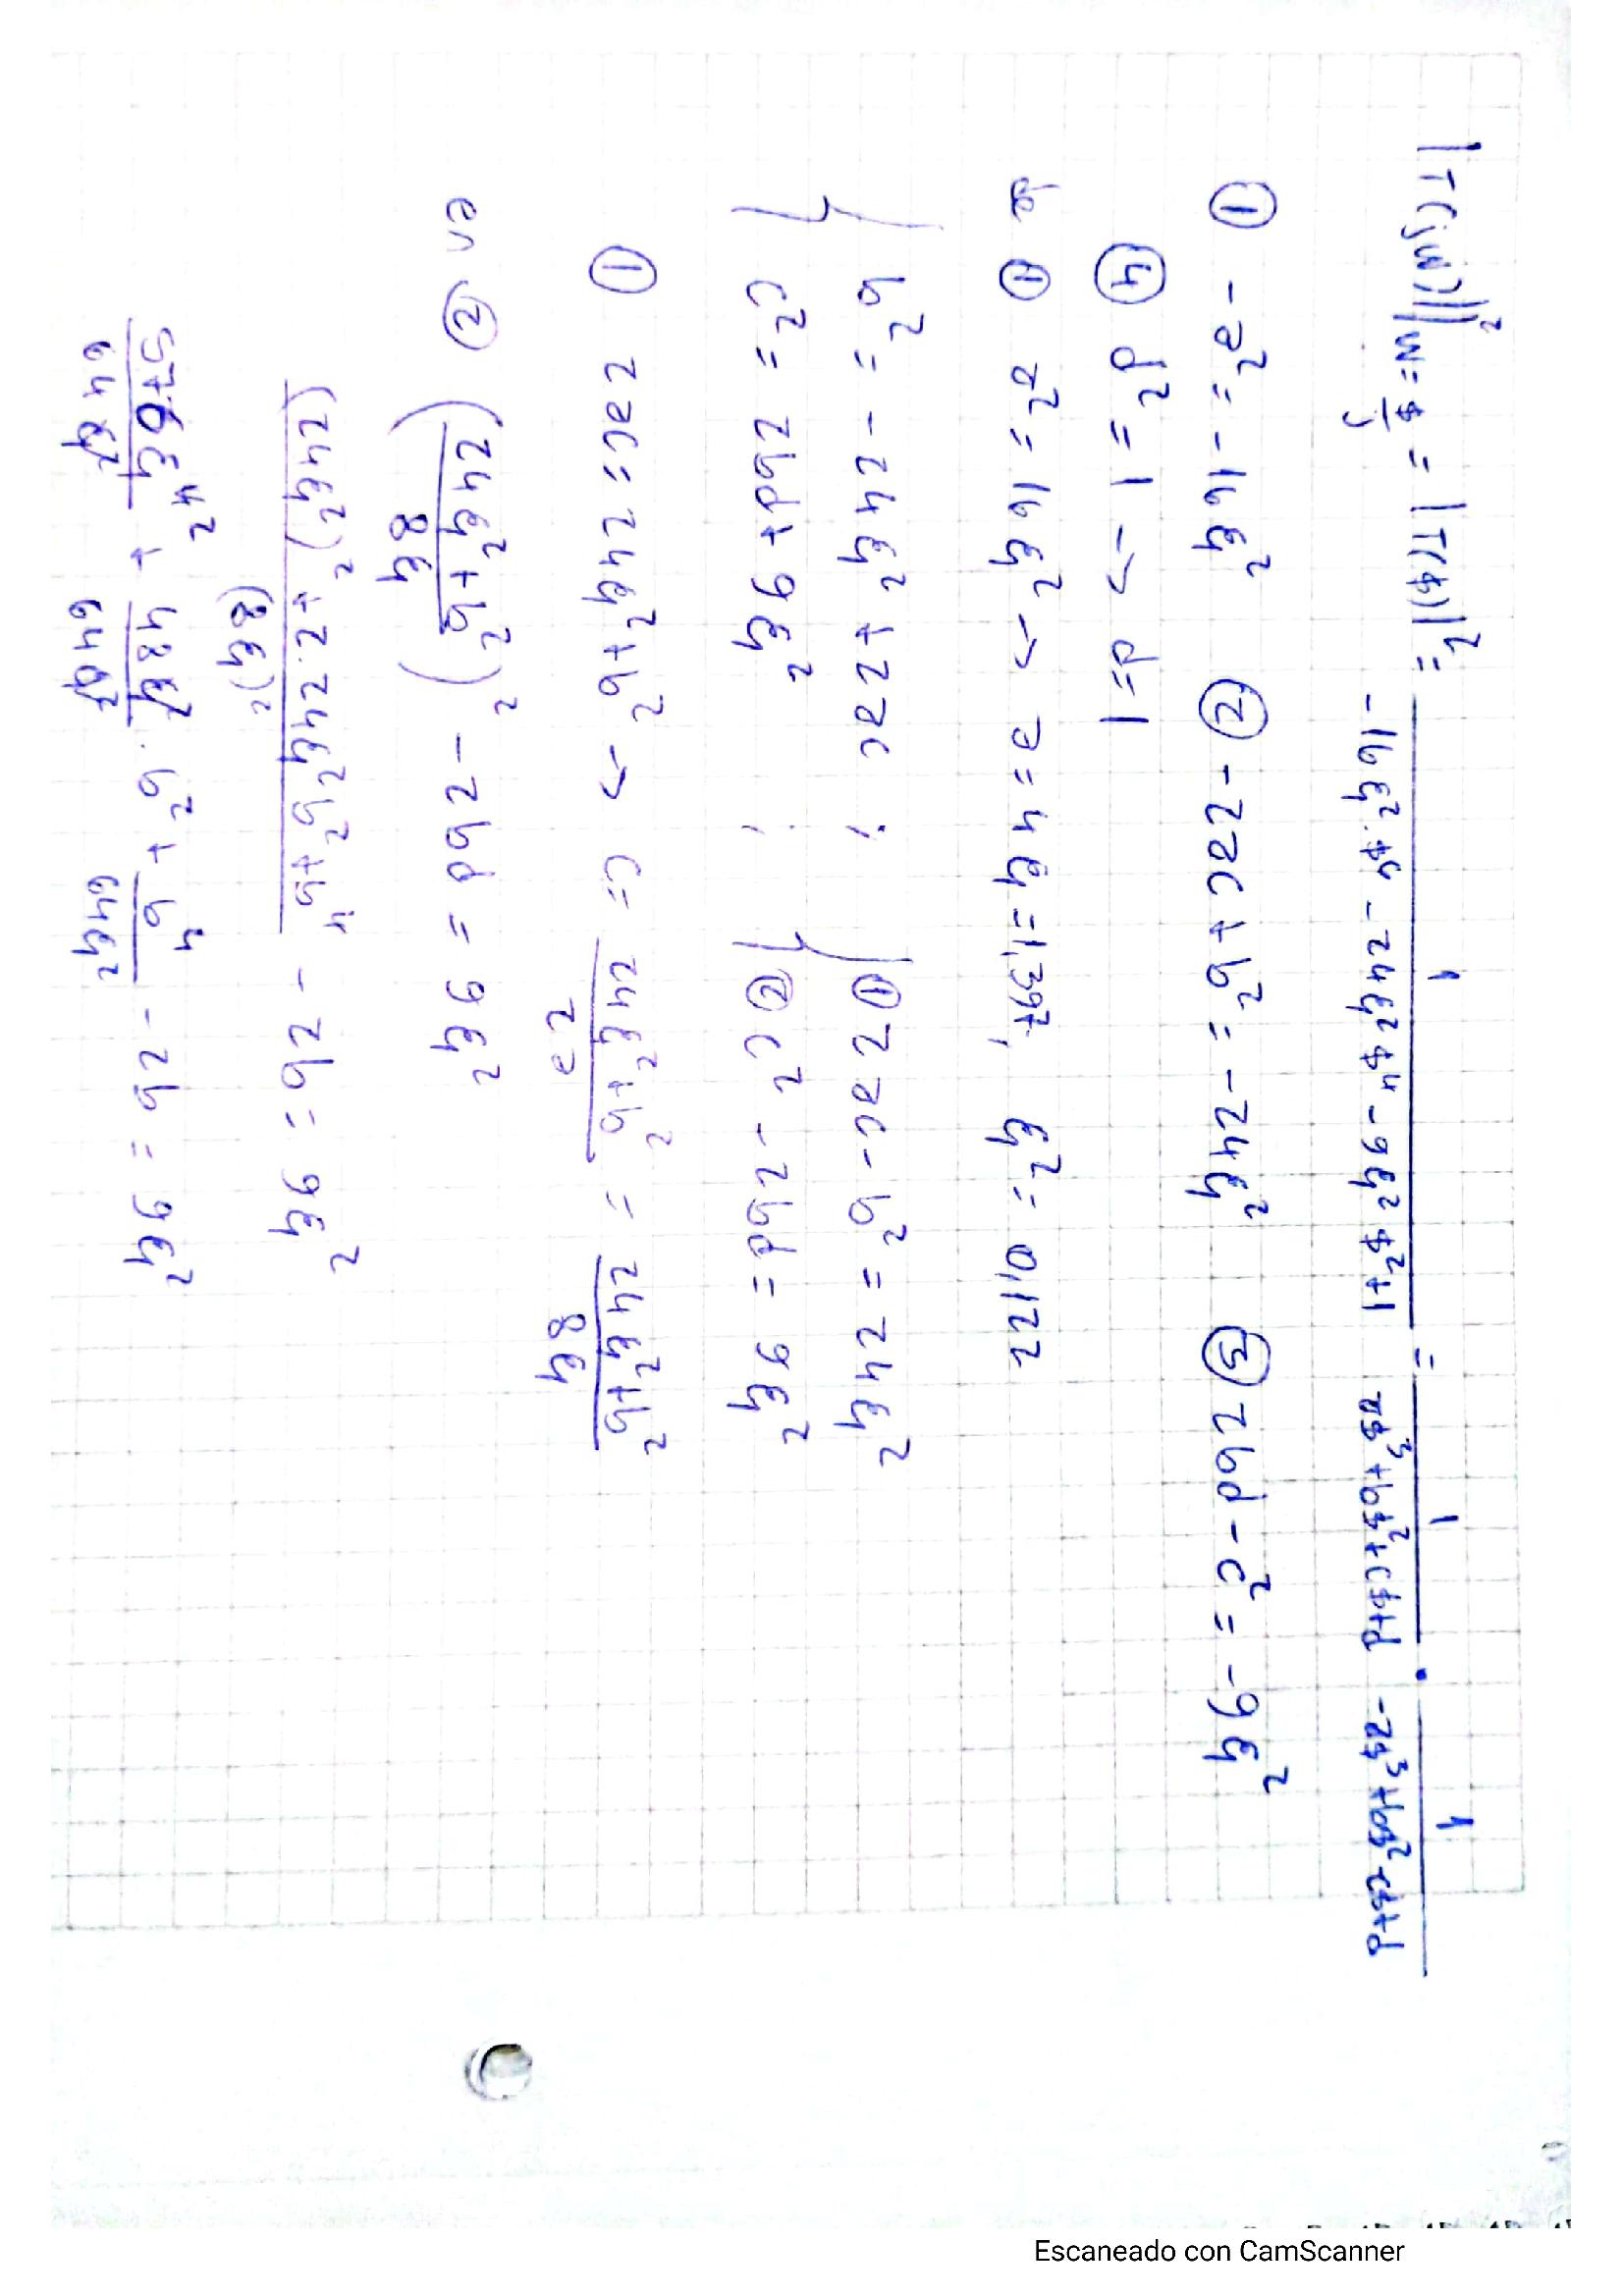 |T(jw)|²|w=$/j = |T($)|² = 1/(-16ξ²·$⁶ - 24ξ²$⁴ - 9ξ²$²+1) = 1/(a$³+b$²+c$+d) · 1/(-a$³+b$²-c$+d)
① -a² = -16ξ² ② -2ac + b² = -24ξ² ③ 2bd - c² = -9ξ²
④ d² = 1 -> d=1
de ① a² = 16ξ² -> a = 4ξ = 1,397, ξ² = 0,122
{ b² = -24ξ² + 2ac ; { ① 2ac - b² = 24ξ²
c² = 2bd + 9ξ² ; ② c² - 2bd = 9ξ²
① 2ac = 24ξ²+b² -> c = (24ξ²+b²)/(2a) = (24ξ²+b²)/(8ξ)
en ② ((24ξ²+b²)/(8ξ))² - 2bd = 9ξ²
((24ξ²)² + 2·24ξ²b² + b⁴)/(8ξ)² - 2b = 9ξ²
576ξ⁴²/64ξ² + 48ξ²/64ξ² · b² + b⁴/64ξ² - 2b = 9ξ²
Escaneado con CamScanner